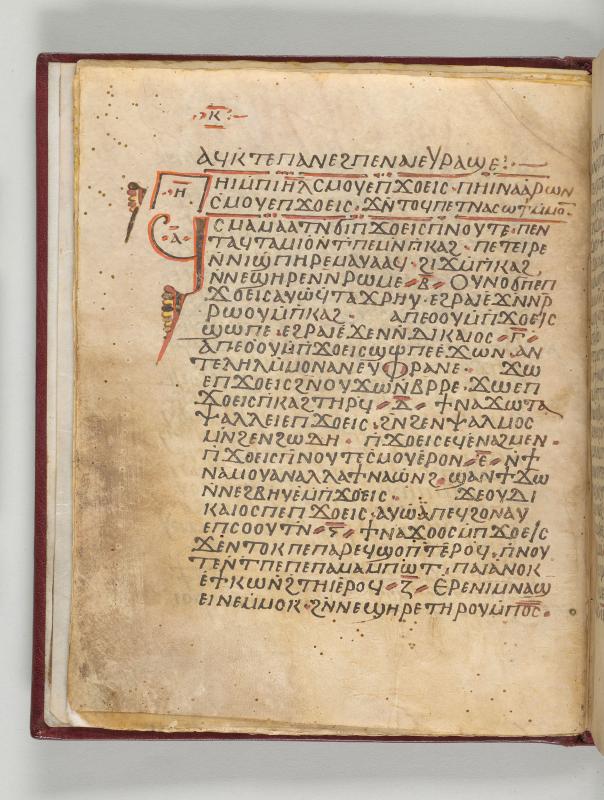 ⲕ̅
ⲁϥⲕⲧⲉⲡⲁⲛⲉϩⲡⲉⲛⲁⲉⲩⲣⲁϣⲉ
ⲡⲏⲓⲙ̅ⲡⲓⲏ̅ⲗ̅ⲥⲙⲟⲩⲉⲡϫⲟⲉⲓⲥ · ⲡⲏⲓⲛⲁⲁⲣⲱⲛ
ⲏ̅
ⲥⲙⲟⲩⲉⲡϫⲟⲉⲓⲥ · ϫⲛ̅ⲧⲟϥⲡⲉⲧⲛⲁⲥⲱⲧⲙ̅ⲙⲟ
ⲁ̅
ϥⲥⲙⲁⲙⲁⲁⲧⲛϭⲓⲡϫⲟⲉⲓⲥⲡⲛⲟⲩⲧⲉ · ⲡⲉⲛ
ⲧⲁϥⲧⲁⲙⲓⲟⲛ̅ⲧⲡⲉⲙⲛ̅ⲡⲕⲁϩ · ⲡⲉⲧⲉⲓⲣⲉ
ⲛ̅ⲛⲓϣⲡⲏⲣⲉⲙⲁⲩⲁⲁϥ · ϩⲓϫⲙ̅ⲡⲕⲁϩ
ⲛ̅ⲛⲉϣⲏⲣⲉⲛ̅ⲛⲣⲱⲙⲉ ⲃ̅ ⲟⲩⲛⲟϭⲡⲉⲡ
ϫⲟⲉⲓⲥⲁⲩⲱϥⲧⲁϫⲣⲏⲩ · ⲉϩⲣⲁⲓⲉϫⲛ̅ⲛⲣ
ⲣⲱⲟⲩⲙ̅ⲡⲕⲁϩ · ⲁⲡⲉⲟⲟⲩⲙ̅ⲡϫⲟⲉⲓⲥ
ϣⲱⲡⲉ · ⲉϩⲣⲁⲓⲉϫⲉⲛⲛ̅ⲇⲓⲕⲁⲓⲟⲥ ⲅ̅
ⲁⲡⲉⲟⲟⲩⲙ̅ⲡϫⲟⲉⲓⲥⲱϥⲡⲉⲉϫⲱⲛ · ⲁⲛ
ⲧⲉⲗⲏⲗⲙ̅ⲙⲟⲛⲁⲛⲉⲩⲫⲣⲁⲛⲉ · ϫⲱ
ⲉⲡϫⲟⲉⲓⲥϩⲛⲟⲩϫⲱⲛ̅ⲃⲣⲣⲉ · ϫⲱⲉⲡ
ϫⲟⲉⲓⲥⲡⲕⲁϩⲧⲏⲣϥ ⲇ̅ ϯⲛⲁϫⲱⲧⲁ
ⲯⲁⲗⲗⲉⲓⲉⲡϫⲟⲉⲓⲥ · ϩⲛϩⲉⲛⲯⲁⲗⲙⲟⲥ
ⲙⲛϩⲉⲛϩⲱⲇⲏ · ⲡ̅ϫⲟⲉⲓⲥⲉϥⲉⲛⲁϩⲙⲉⲛ ·
ⲡ̅ϫⲟⲉⲓⲥⲡⲛⲟⲩⲧⲉⲥⲙⲟⲩⲉⲣⲟⲛ ⲉ̅ ⲛ̅ϯ
ⲛⲁⲙⲟⲩⲁⲛⲁⲗⲗⲁϯⲛⲁⲱⲛϩ · ϣⲁⲛϯϫⲱ
ⲛ̅ⲛⲉϩⲃⲏⲩⲉⲙ̅ⲡϫⲟⲉⲓⲥ · ϫⲉⲟⲩⲇⲓ
ⲕⲁⲓⲟⲥⲡⲉⲡϫⲟⲉⲓⲥ · ⲁⲩⲱⲁ̅ⲡⲉϥϩⲟⲛⲁⲩ
ⲉⲡⲥⲟⲟⲩⲧⲛ ⲋ̅ ϯⲛⲁϫⲟⲟⲥⲙ̅ⲡϫⲟⲉⲓⲥ
ϫⲉⲛ̅ⲧⲟⲕⲡⲉⲡⲁⲣⲉϥϣⲟⲡⲧ̅ⲉⲣⲟϥ · ⲡ̅ⲛⲟⲩ
ⲧⲉⲛ̅ⲧⲡⲉⲡⲉⲡⲁⲙⲁⲙ̅ⲡⲱⲧ · ⲡⲁⲓⲁⲛⲟⲕ
ⲉϯⲕⲱⲛ̅ϩⲧⲏⲓⲉⲣⲟϥ ⲍ̅ ⲉⲣⲉⲛⲓⲙⲛⲁϣ
ⲉⲓⲛⲉⲙ̅ⲙⲟⲕ · ϩⲛ̅ⲛⲉϣⲏⲣⲉⲧⲏⲣⲟⲩⲙ̅ⲡⲟ̅ⲥ̅